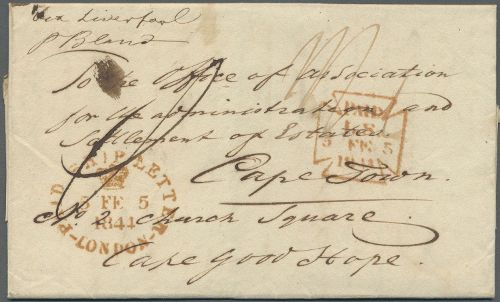 via Liverpool
p Bland
To the Office of Association
for the administration and
Settlement of Estates
Cape Town.
No. 2 Church Square
Cape Good Hope.
PAID SHIP LETTER
5 FE 5
1844
LONDON
PAID
5 FE 5
1844